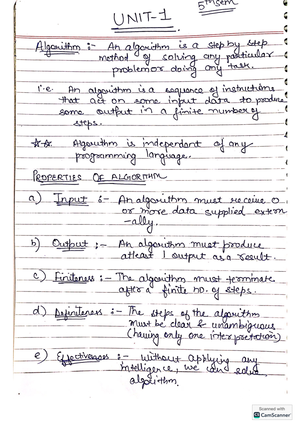 5th sem
UNIT-1
Algorithm :- An algorithm is a step by step
method of solving any particular
problem or doing any task.
i.e. An algorithm is a sequence of instructions
that act on some input data to produce
some output in a finite number of
steps.
** Algorithm is independant of any
programming language.
PROPERTIES OF ALGORITHM
a) Input :- An algorithm must receive 0
or more data supplied extern
-ally.
b) Output :- An algorithm must produce
atleast 1 output as a result.
c) Finiteness :- The algorithm must terminate
after a finite no. of steps.
d) Definiteness :- The steps of the algorithm
must be clear & unambiguous
(having only one interpretation)
e) Effectiveness :- Without applying any
intelligence, we can solve
algorithm.
Scanned with
CS CamScanner